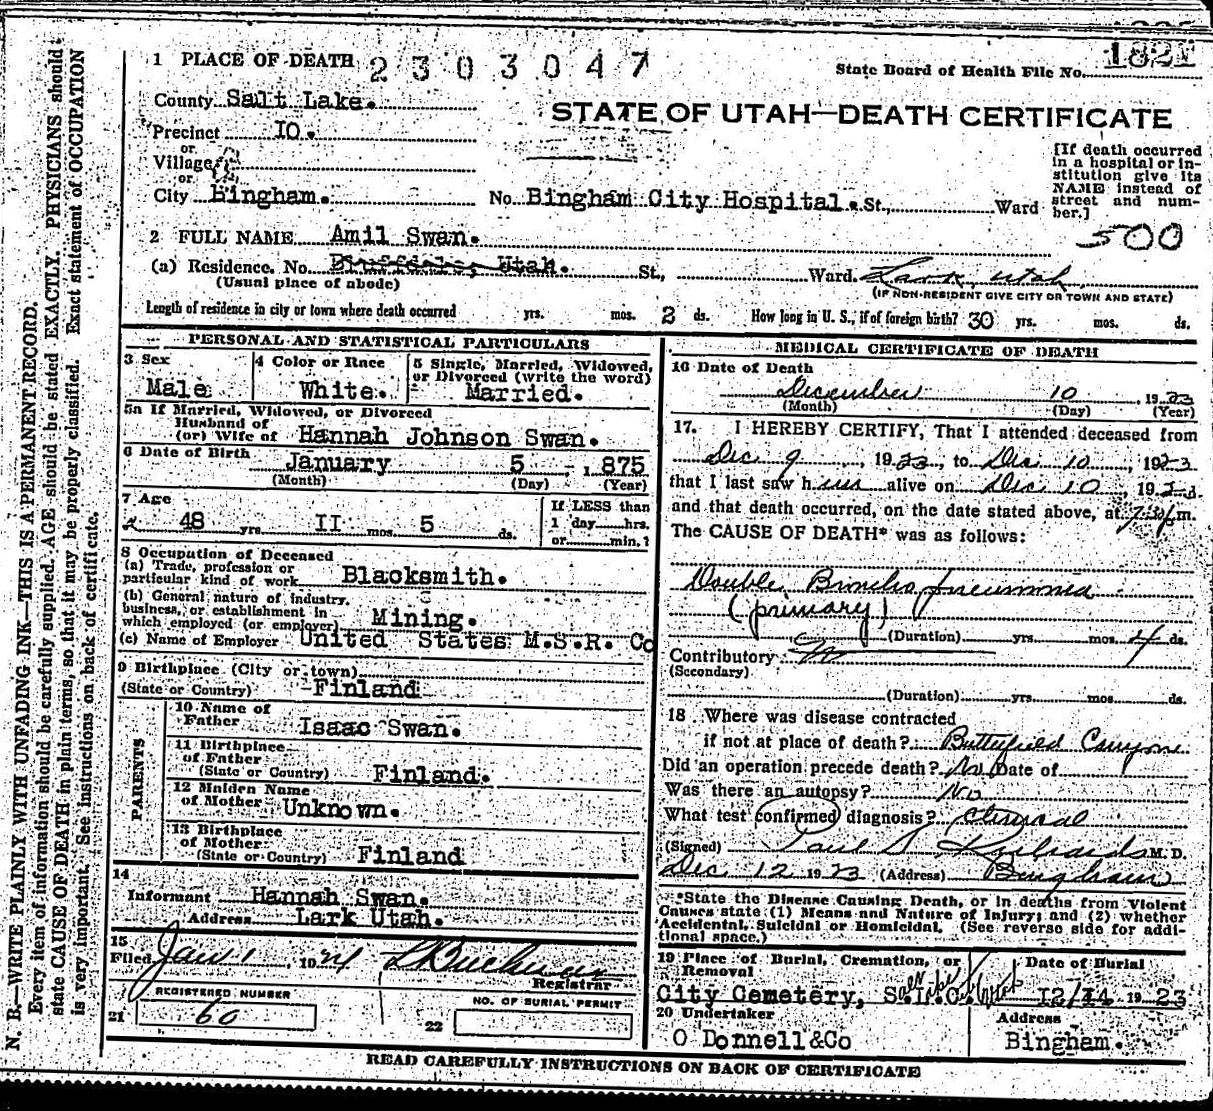 1821
1 PLACE OF DEATH 2303047
State Board of Health File No.
County Salt Lake.
STATE OF UTAH—DEATH CERTIFICATE
Precinct IO.
or
Village
or
City Bingham. No. Bingham City Hospital. St., Ward
[If death occurred
in a hospital or in-
stitution give its
NAME instead of
street and num-
ber.]
500
2 FULL NAME Amil Swan.
(a) Residence. No. Bluffdale, Utah. St., Ward. Lark, Utah
(Usual place of abode) (IF NON-RESIDENT GIVE CITY OR TOWN AND STATE)
Length of residence in city or town where death occurred yrs. mos. 2 ds. How long in U. S., if of foreign birth? 30 yrs. mos. ds.
PERSONAL AND STATISTICAL PARTICULARS
3 Sex Male
4 Color or Race White.
5 Single, Married, Widowed,
or Divorced (write the word)
Married.
5a If Married, Widowed, or Divorced
Husband of
(or) Wife of Hannah Johnson Swan.
6 Date of Birth January 5 1875
(Month) (Day) (Year)
7 Age
48 yrs. II mos. 5 ds.
If LESS than
1 day hrs.
or min.?
8 Occupation of Deceased
(a) Trade, profession or
particular kind of work Blacksmith.
(b) General nature of industry,
business, or establishment in
which employed (or employer) Mining.
(c) Name of Employer United States M.S.R. Co
9 Birthplace (City or town)
(State or Country) Finland
PARENTS
10 Name of
Father Isaac Swan.
11 Birthplace
of Father
(State or Country) Finland.
12 Maiden Name
of Mother Unknown.
13 Birthplace
of Mother
(State or Country) Finland
14
Informant Hannah Swan.
Address Lark Utah.
15
Filed Jan 1, 1924
Registrar
REGISTERED NUMBER
21 60
NO. OF BURIAL PERMIT
22
MEDICAL CERTIFICATE OF DEATH
16 Date of Death
December 10, 1923
(Month) (Day) (Year)
17. I HEREBY CERTIFY, That I attended deceased from
Dec 9, 1923, to Dec 10, 1923
that I last saw him alive on Dec 10, 1923.
and that death occurred, on the date stated above, at m.
The CAUSE OF DEATH* was as follows:
Double Broncho pneumonia
(primary)
(Duration) yrs. mos. 4 ds.
Contributory
(Secondary)
(Duration) yrs. mos. ds.
18 Where was disease contracted
if not at place of death? Butterfield Canyon
Did an operation precede death? No Date of
Was there an autopsy? No
What test confirmed diagnosis? Clinical
(Signed) Paul S. Richards M. D.
Dec 12 1923 (Address) Bingham
*State the Disease Causing Death, or in deaths from Violent
Causes state (1) Means and Nature of Injury; and (2) whether
Accidental, Suicidal or Homicidal. (See reverse side for addi-
tional space.)
19 Place of Burial, Cremation, or
Removal
City Cemetery, S.L.C. Salt Lake City Utah
Date of Burial
12/14 1923
20 Undertaker
O Donnell&Co
Address
Bingham.
READ CAREFULLY INSTRUCTIONS ON BACK OF CERTIFICATE
N. B.—WRITE PLAINLY WITH UNFADING INK—THIS IS A PERMANENT RECORD.
Every item of information should be carefully supplied. AGE should be stated EXACTLY. PHYSICIANS should
state CAUSE OF DEATH in plain terms, so that it may be properly classified. Exact statement of OCCUPATION
is very important. See instructions on back of certificate.